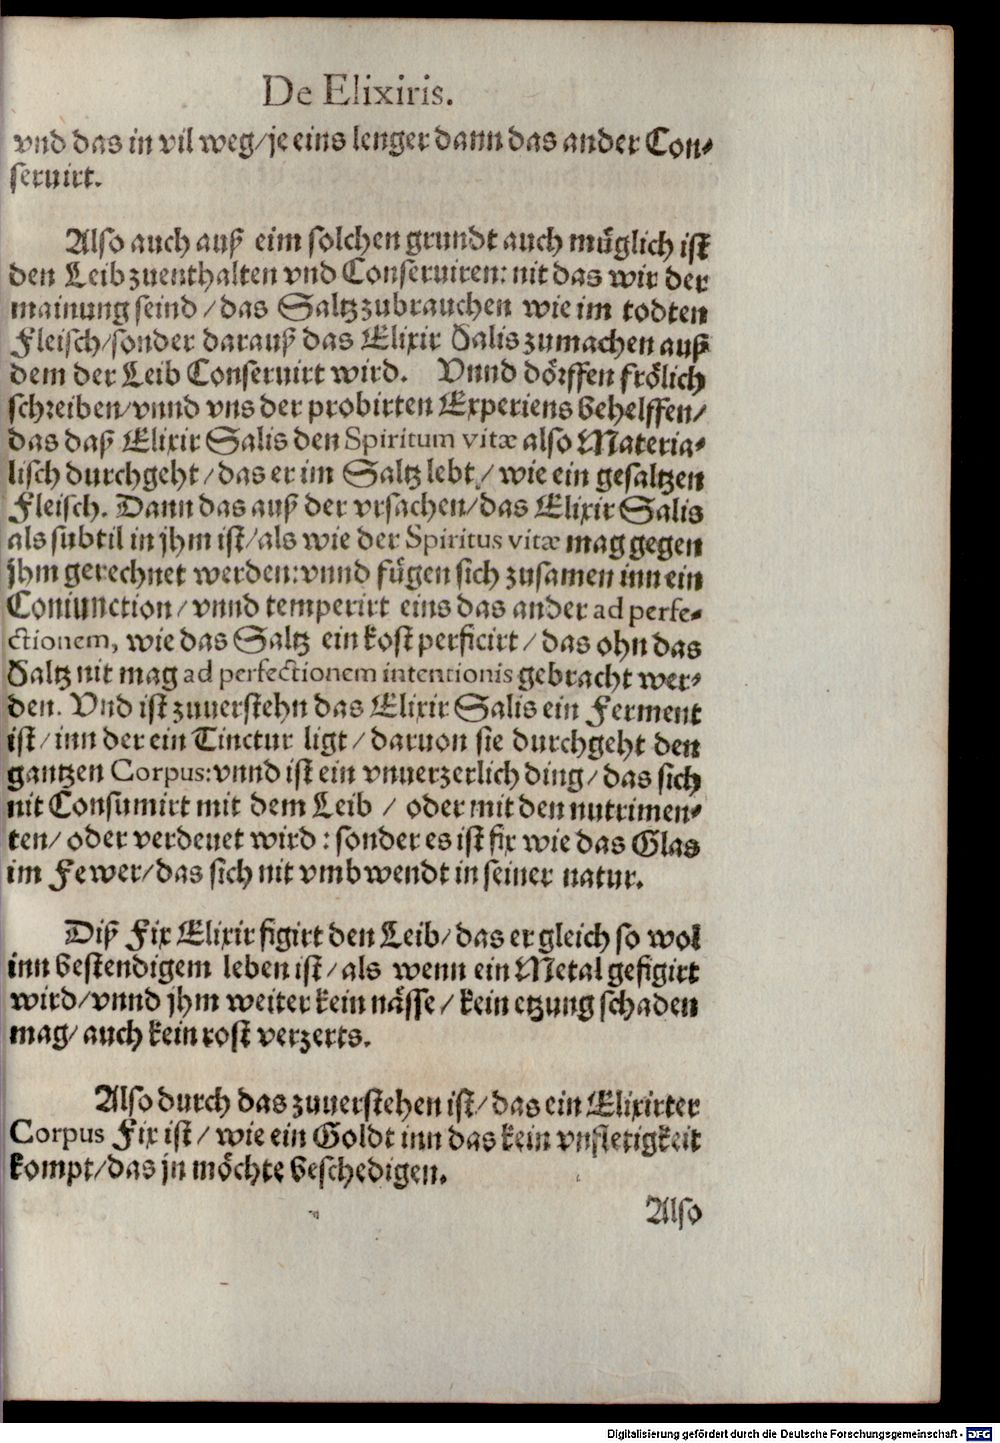 De Elixiris.
vnd das in vil weg/je eins lenger dann das ander Con-
seruirt.
Also auch auß eim solchen grundt auch müglich ist
den Leib zuenthalten vnd Conseruiren: nit das wir der
mainung seind / das Saltz zubrauchen wie im todten
Fleisch/sonder darauß das Elixir Salis zumachen auß
dem der Leib Conseruirt wird. Vnnd dörffen frölich
schreiben/vnnd vns der probirten Experiens behelffen/
das daß Elixir Salis den Spiritum vitæ also Materia-
lisch durchgeht/das er im Saltz lebt / wie ein gesaltzen
Fleisch. Dann das auß der vrsachen/das Elixir Salis
als subtil in jhm ist/als wie der Spiritus vitæ mag gegen
jhm gerechnet werden:vnnd fügen sich zusamen inn ein
Coniunction/vnnd temperirt eins das ander ad perfe-
ctionem, wie das Saltz ein kost perficirt/das ohn das
Saltz nit mag ad perfectionem intentionis gebracht wer-
den. Vnd ist zuuerstehn das Elixir Salis ein Ferment
ist/inn der ein Tinctur ligt/daruon sie durchgeht den
gantzen Corpus:vnnd ist ein vnuerzerlich ding/das sich
nit Consumirt mit dem Leib / oder mit den nutrimen-
ten/ oder verdeuet wird : sonder es ist fix wie das Glas
im Fewer/das sich nit vmbwendt in seiner natur.
Diß Fix Elixir figirt den Leib/das er gleich so wol
inn bestendigem leben ist/als wenn ein Metal gefigirt
wird/vnnd jhm weiter kein nässe/kein etzung schaden
mag/auch kein rost verzerts.
Also durch das zuuerstehen ist/das ein Elixirter
Corpus Fix ist/wie ein Goldt inn das kein vnfletigkeit
kompt/das jn möchte beschedigen.
Also
Digitalisierung gefördert durch die Deutsche Forschungsgemeinschaft - DFG